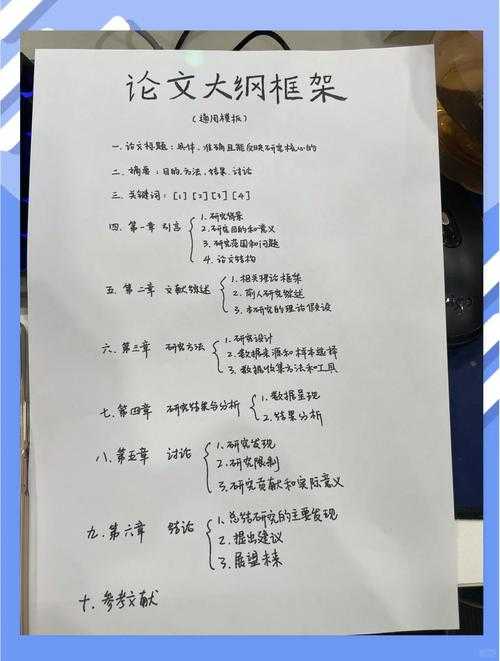 论文大纲框架
(通用模板)
一. 论文标题：具体、准确且能反映研究核心的
二. 摘要：目的.方法.结果.讨论
三. 关键词：[1][2][3][4]
四. 第一章 引言
1. 研究背景
2. 研究目的和意义
3. 研究范围和问题
4. 论文结构
五. 第二章 文献综述
1. 相关理论框架
2. 前人研究综述
3. 本研究的理论假设
六. 第三章 研究方法
1. 研究设计
2. 数据来源和样本选择
3. 数据收集方法和工具
七. 第四章 研究结果与分析
1. 数据呈现
2. 结果分析
八. 第五章 讨论
1. 研究发现
2. 研究限制
3. 研究贡献和实际意义
九. 第六章 结论
1. 总结研究的主要发现
2. 提出建议
3. 展望未来
十. 参考文献